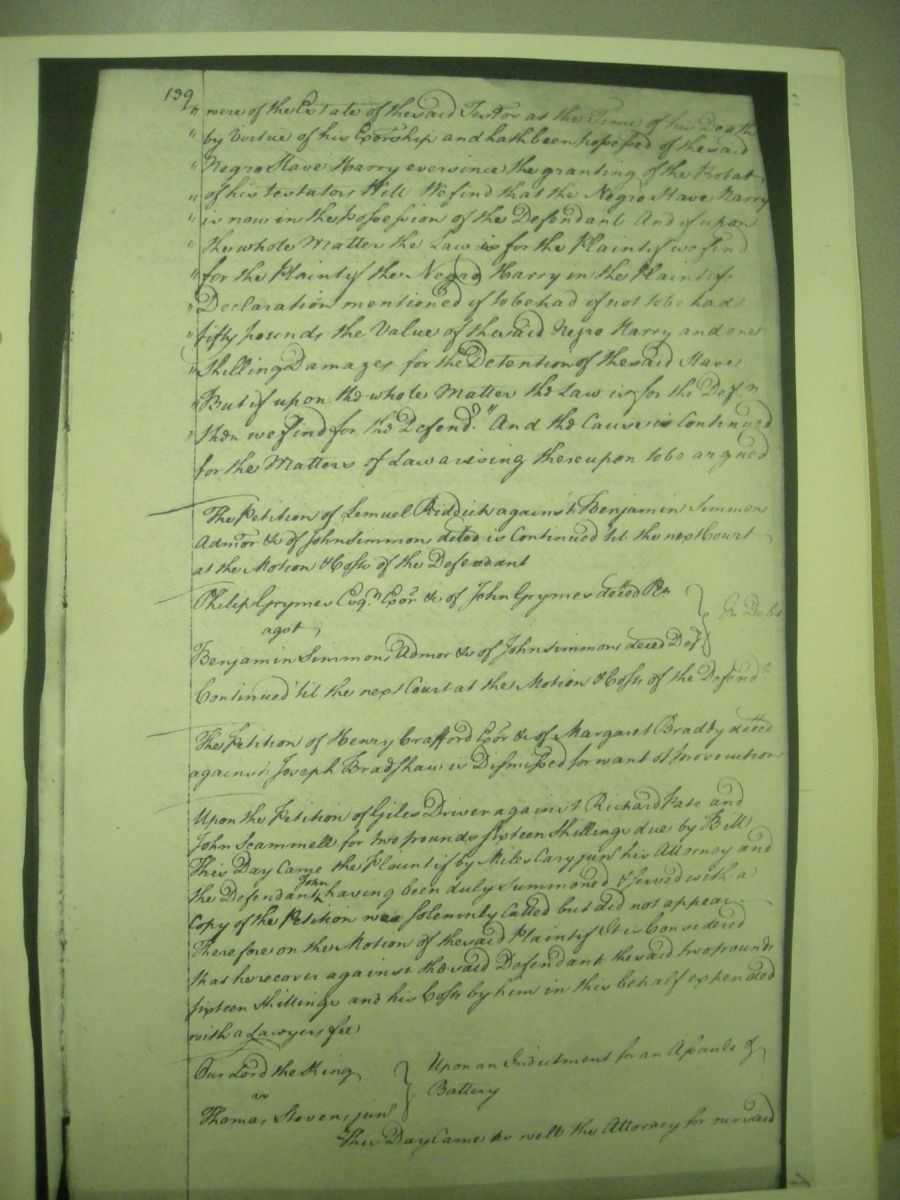 139
" were of the Estate of the said Testor at the Time of his Death
" by Virtue of his Exorship and hath been possessed of the said
" Negro Slave Harry ever since the granting of the Probat
" of his testators Will We find that the Negro Slave Harry
" is now in the Possession of the Defendant And if upon
" the whole Matter the Law is for the Plaintif we find
" for the Plaintif the Negro Harry in the Plaintifs
" Declaration mentioned if to be had if not to be had
" fifty pounds the Value of the said Negro Harry and one
" Shilling Damages for the Detention of the said Slave
" But if upon the whole Matter the Law is for the Defen
" then we find for the Defend.t" And the Cause is Continued
for the Matters of Law arising thereupon to be argued
The Petition of Lemuel Riddick against Benjamin Simmons
Admor &c of John Simmons deced is Continued til the next Court
at the Motion & Costs of the Defendant
Philip Grymes Esq.r Exor &c of John Grymes deced
agst
Benjamin Simmons Admor &c of John Simmons deced Def.t
In Debt
Continued til the next Court at the Motion & Costs of the Defend.t
The Petition of Henry Crafford Exor &c of Margaret Bradby deced
against Joseph Bradshaw is Dismissed for want of Prosecution
Upon the Petition of Giles Driver against Richard Pate and
John Scammell for two pounds sixteen Shillings due by Bill
This Day Came the Plaintif by Miles Cary jun.r his Attorney and
the Defendant John having been duly Summoned & served with a
Copy of the Petition was Solemnly Called but did not appear
Therefore on the Motion of the said Plaintif It is Considered
that he recover against the said Defendant the said two pounds
sixteen Shillings and his Costs by him in this behalf expended
with a Lawyers fee
Our Lord the King
vs
Thomas Stevens jun.r
Upon an Indictment for an Assault &
Battery
This Day Came as well the Attorney for our said